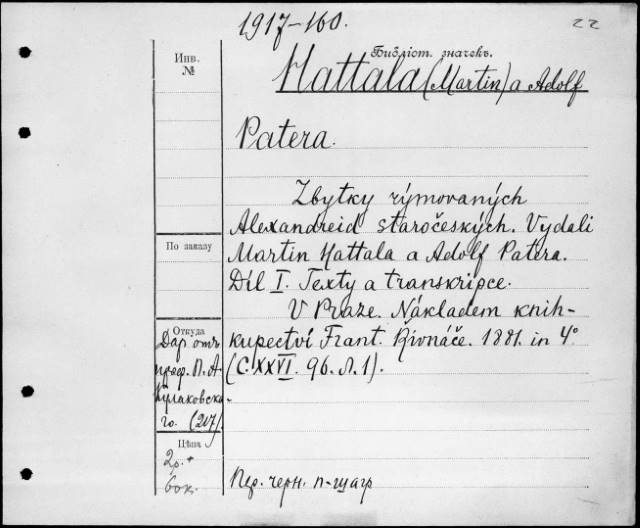 1917-160.
22
Инв. №
Библіот. значекъ.
Hattala (Martin) a Adolf
Patera.
Zbytky rýmovaných
Alexandreid staročeských. Vydali
По заказу
Martin Hattala a Adolf Patera.
Díl I. Texty a transkripce.
V Praze. Nákladem knih-
Откуда
kupectví Frant. Řivnáče. 1881. in 4°
(C.XXVI. 96. Л. 1).
Дар. отъ
проф. П. А
Кулаковска-
го. (207).
Цѣна
2р. +
60к.
Пер. черн. п-шагр